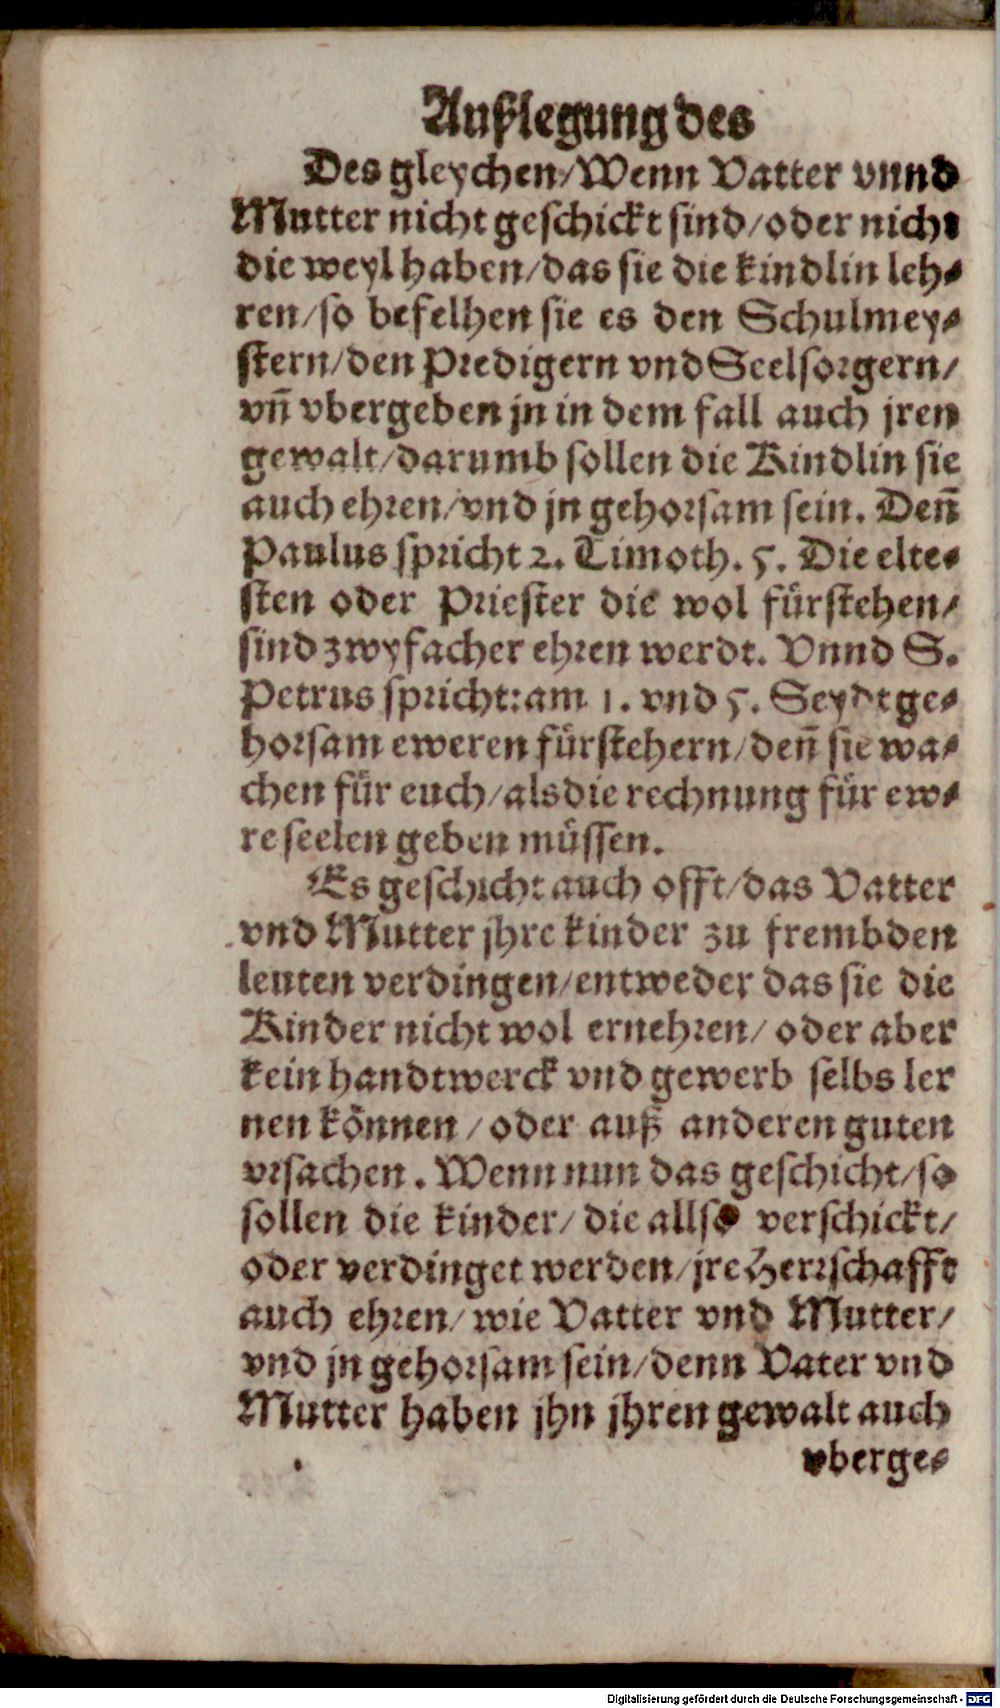 Außlegung des
Des gleychen/Wenn Vatter vnnd
Mutter nicht geschickt sind/oder nicht
die weyl haben/das sie die kindlin leh⸗
ren/so befelhen sie es den Schulmey⸗
stern/den Predigern vnd Seelsorgern/
vñ vbergeben jn in dem fall auch jren
gewalt/darumb sollen die Kindlin sie
auch ehren/vnd jn gehorsam sein. Deñ
Paulus spricht 2. Timoth. 5. Die elte⸗
sten oder Priester die wol fürstehen/
sind zwyfacher ehren werdt. Vnnd S.
Petrus spricht:am 1. vnd 5. Seydt ge⸗
horsam eweren fürstehern/deñ sie wa⸗
chen für euch/als die rechnung für ew⸗
re seelen geben müssen.
Es geschicht auch offt/das Vatter
vnd Mutter jhre kinder zu frembden
leuten verdingen/entweder das sie die
Kinder nicht wol ernehren/ oder aber
kein handtwerck vnd gewerb selbs ler
nen können /oder auß anderen guten
vrsachen. Wenn nun das geschicht/so
sollen die kinder/ die allso verschickt/
oder verdinget werden/jre Herrschafft
auch ehren/ wie Vatter vnd Mutter/
vnd jn gehorsam sein/denn Vater vnd
Mutter haben jhn jhren gewalt auch
vberge⸗
Digitalisierung gefördert durch die Deutsche Forschungsgemeinschaft - DFG